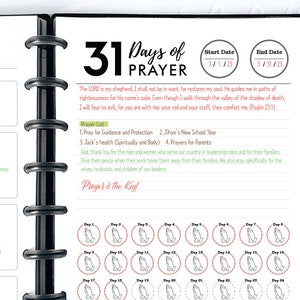 31 Days of
PRAYER
Start Date
5 / 1 / 23
End Date
5 / 31 / 23
The LORD is my shepherd, I shall not be in want, he restores my soul. He guides me in paths of
righteousness for his name's sake. Even though I walk through the valley of the shadow of death,
I will fear no evil, for you are with me; your rod and your staff, they comfort me. (Psalm 23:1)
Prayer List
1. Pray for Guidance and Protection 2. Jihye's New School Year
3. Jack's health (Spiritually and Body) 4. Prayers for Parents
God, thank You for the men and women who serve our country in leadership roles and for their families.
Give them peace when their work takes them away from their families. We also pray specifically for the wives,
husbands, and children of our leaders.
Prayer is the Key!
Day 1 Day 2 Day 3 Day 4 Day 5 Day 6 Day 7 Day 8
Day 9 Day 10 Day 11 Day 12 Day 13 Day 14 Day 15 Day 16
Day 17 Day 18 Day 19 Day 20 Day 21 Day 22 Day 23 Day 24